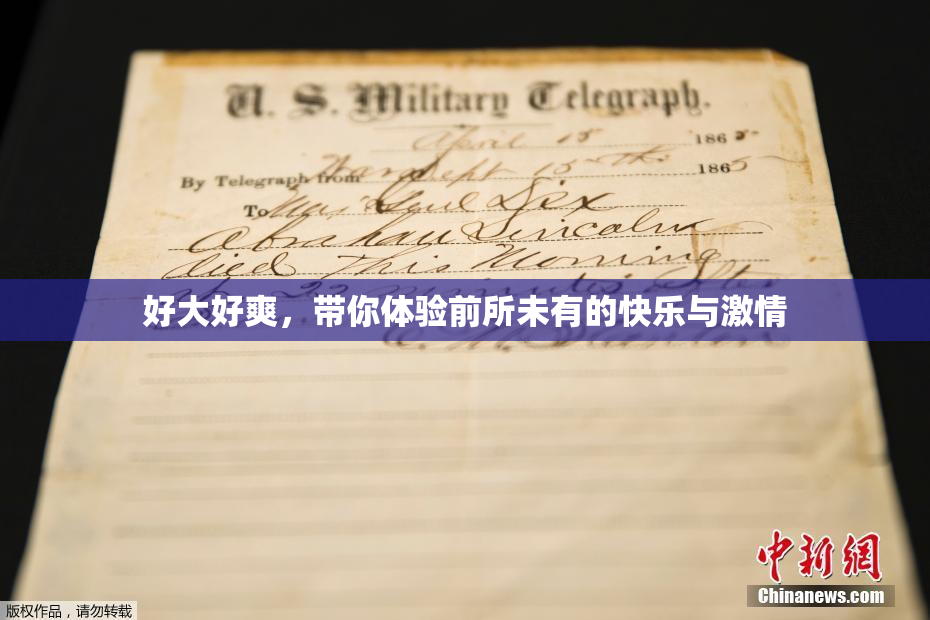 U. S. Military Telegraph.
April 15 1865
By Telegraph from War Dept 15th 1865
To Maj Genl Dix
Abraham Lincoln
died This Morning
22 minutes after
好大好爽，带你体验前所未有的快乐与激情
E. M. Stanton
中新網
Chinanews.com
版权作品，请勿转载